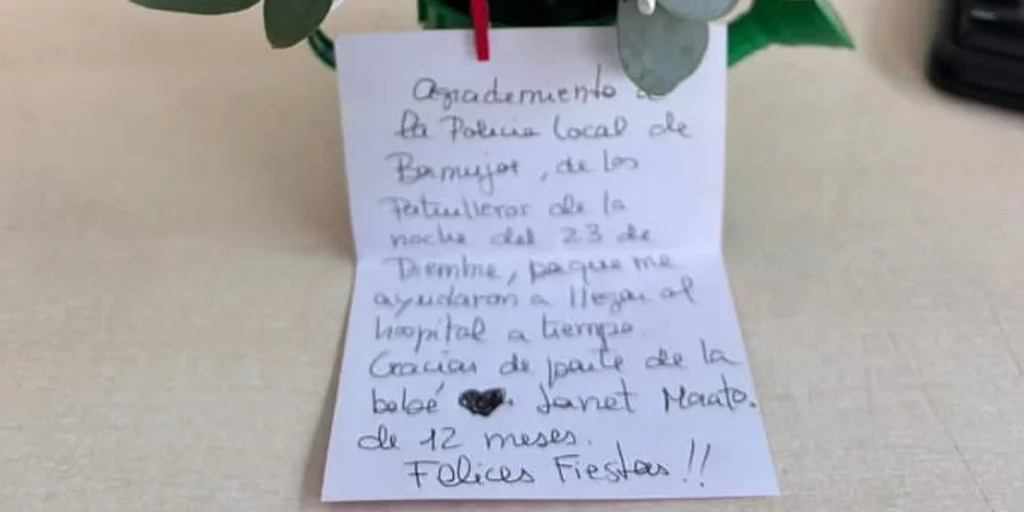 Agrademiento
la Policia Local de
Bormujos, de los
Patrulleros de la
noche del 23 de
Diembre, paque me
ayudaron a llegar al
hospital a tiempo.
Gracias de parte de la
bebé Janet Maato.
de 12 meses.
Felices Fiestas!!